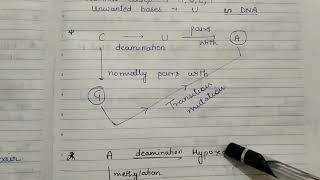 Unwanted bases → U in DNA
C → U pairs with → A
deamination
normally pairs with
G
Transition mutation
A deamination → Hypox
methylation